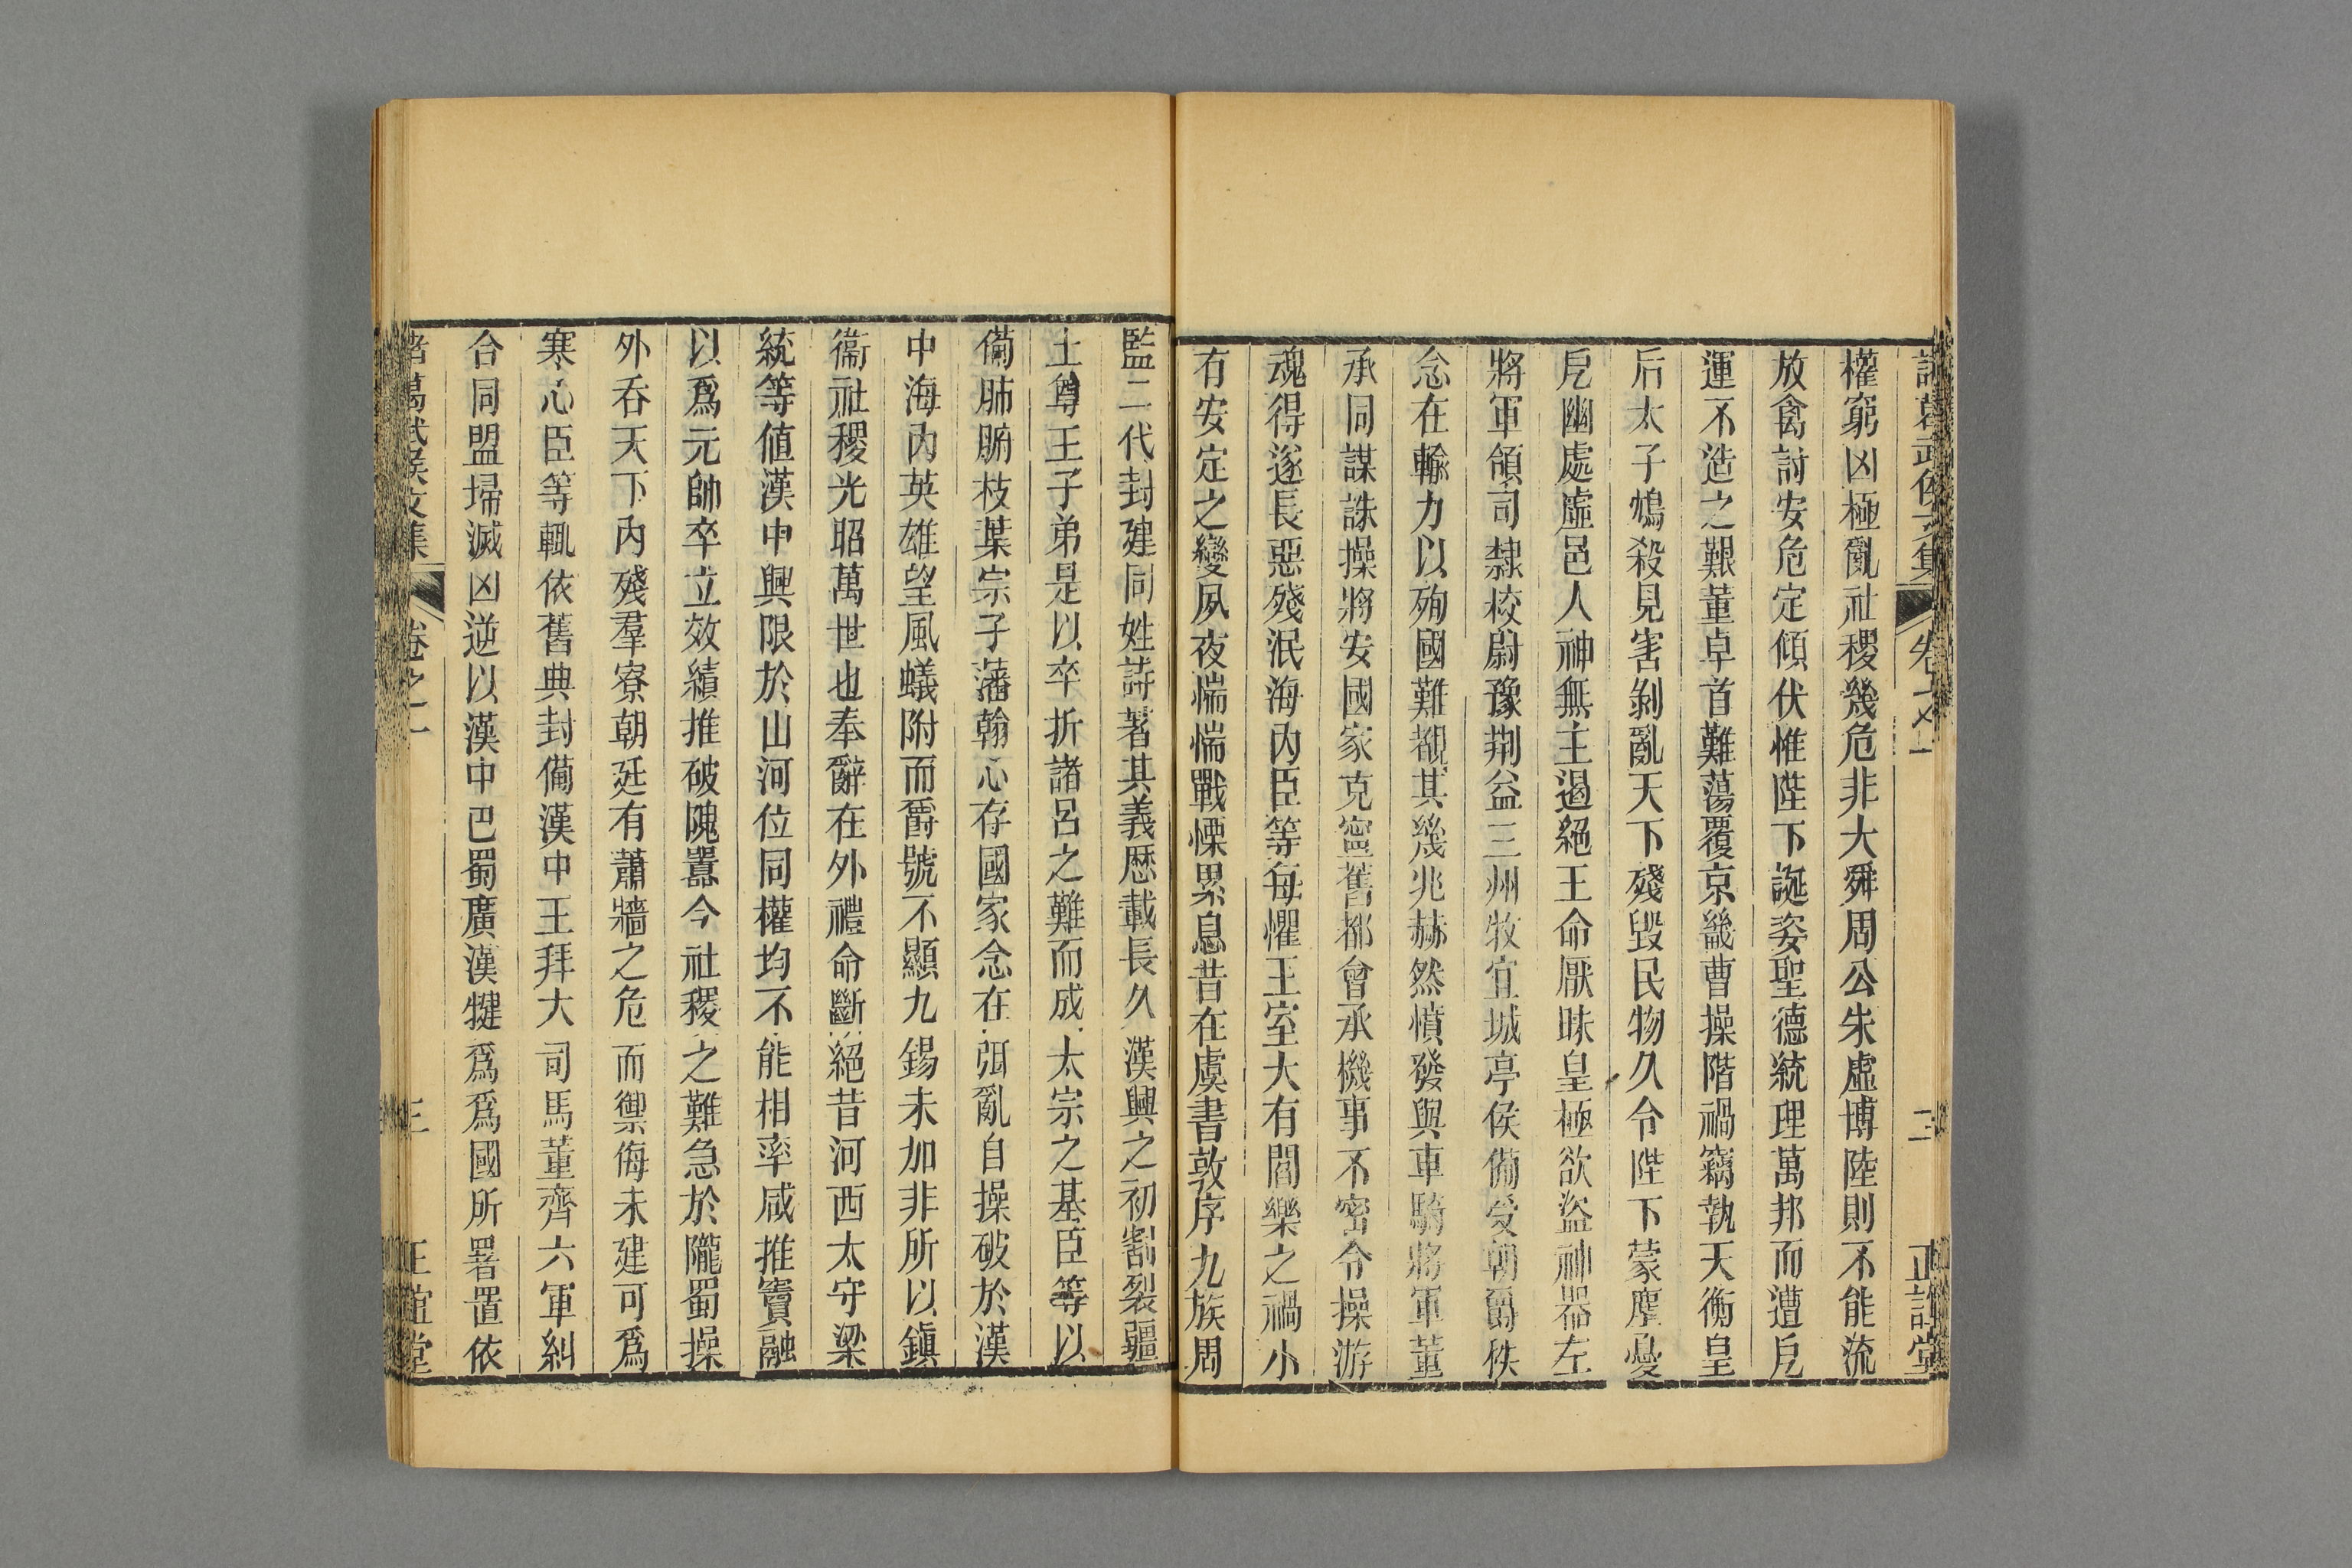 諸葛武侯文集 卷之一 二 正誼堂
權窮凶極亂社稷幾危非大舜周公朱虛博陸則不能流
放禽討安危定傾伏惟陛下誕姿聖德統理萬邦而遭戹
運不造之艱董卓首難蕩覆京畿曹操階禍竊執天衡皇
后太子鴆殺見害剝亂天下殘毀民物久令陛下蒙塵憂
戹幽處虛邑人神無主遏絕王命厭昧皇極欲盜神器左
將軍領司隸校尉豫荆益三州牧宜城亭侯備受朝爵秩
念在輸力以殉國難覩其幾兆赫然憤發與車騎將軍董
承同謀誅操將安國家克寧舊都會承機事不密令操游
魂得遂長惡殘泯海內臣等每懼王室大有閻樂之禍小
有安定之變夙夜惴惴戰慄累息昔在虞書敦序九族周
監二代封建同姓詩著其義歷載長久漢興之初割裂疆
土尊王子弟是以卒折諸呂之難而成太宗之基臣等以
備肺腑枝葉宗子藩翰心存國家念在弭亂自操破於漢
中海內英雄望風蟻附而爵號不顯九錫未加非所以鎭
衞社稷光昭萬世也奉辭在外禮命斷絕昔河西太守梁
統等値漢中興限於山河位同權均不能相率咸推竇融
以爲元帥卒立效績推破隗囂今社稷之難急於隴蜀操
外吞天下內殘羣寮朝廷有蕭牆之危而禦侮未建可爲
寒心臣等輒依舊典封備漢中王拜大司馬董齊六軍糾
合同盟埽滅凶逆以漢中巴蜀廣漢犍爲爲國所署置依
諸葛武侯文集 卷之一 三 正誼堂